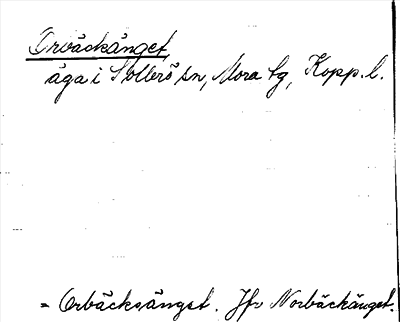 Orbäckänget,
äga i Sollerö sn, Mora tg, Kopp. l.
= Orbäcksänget. Jfr Norbäckänget.